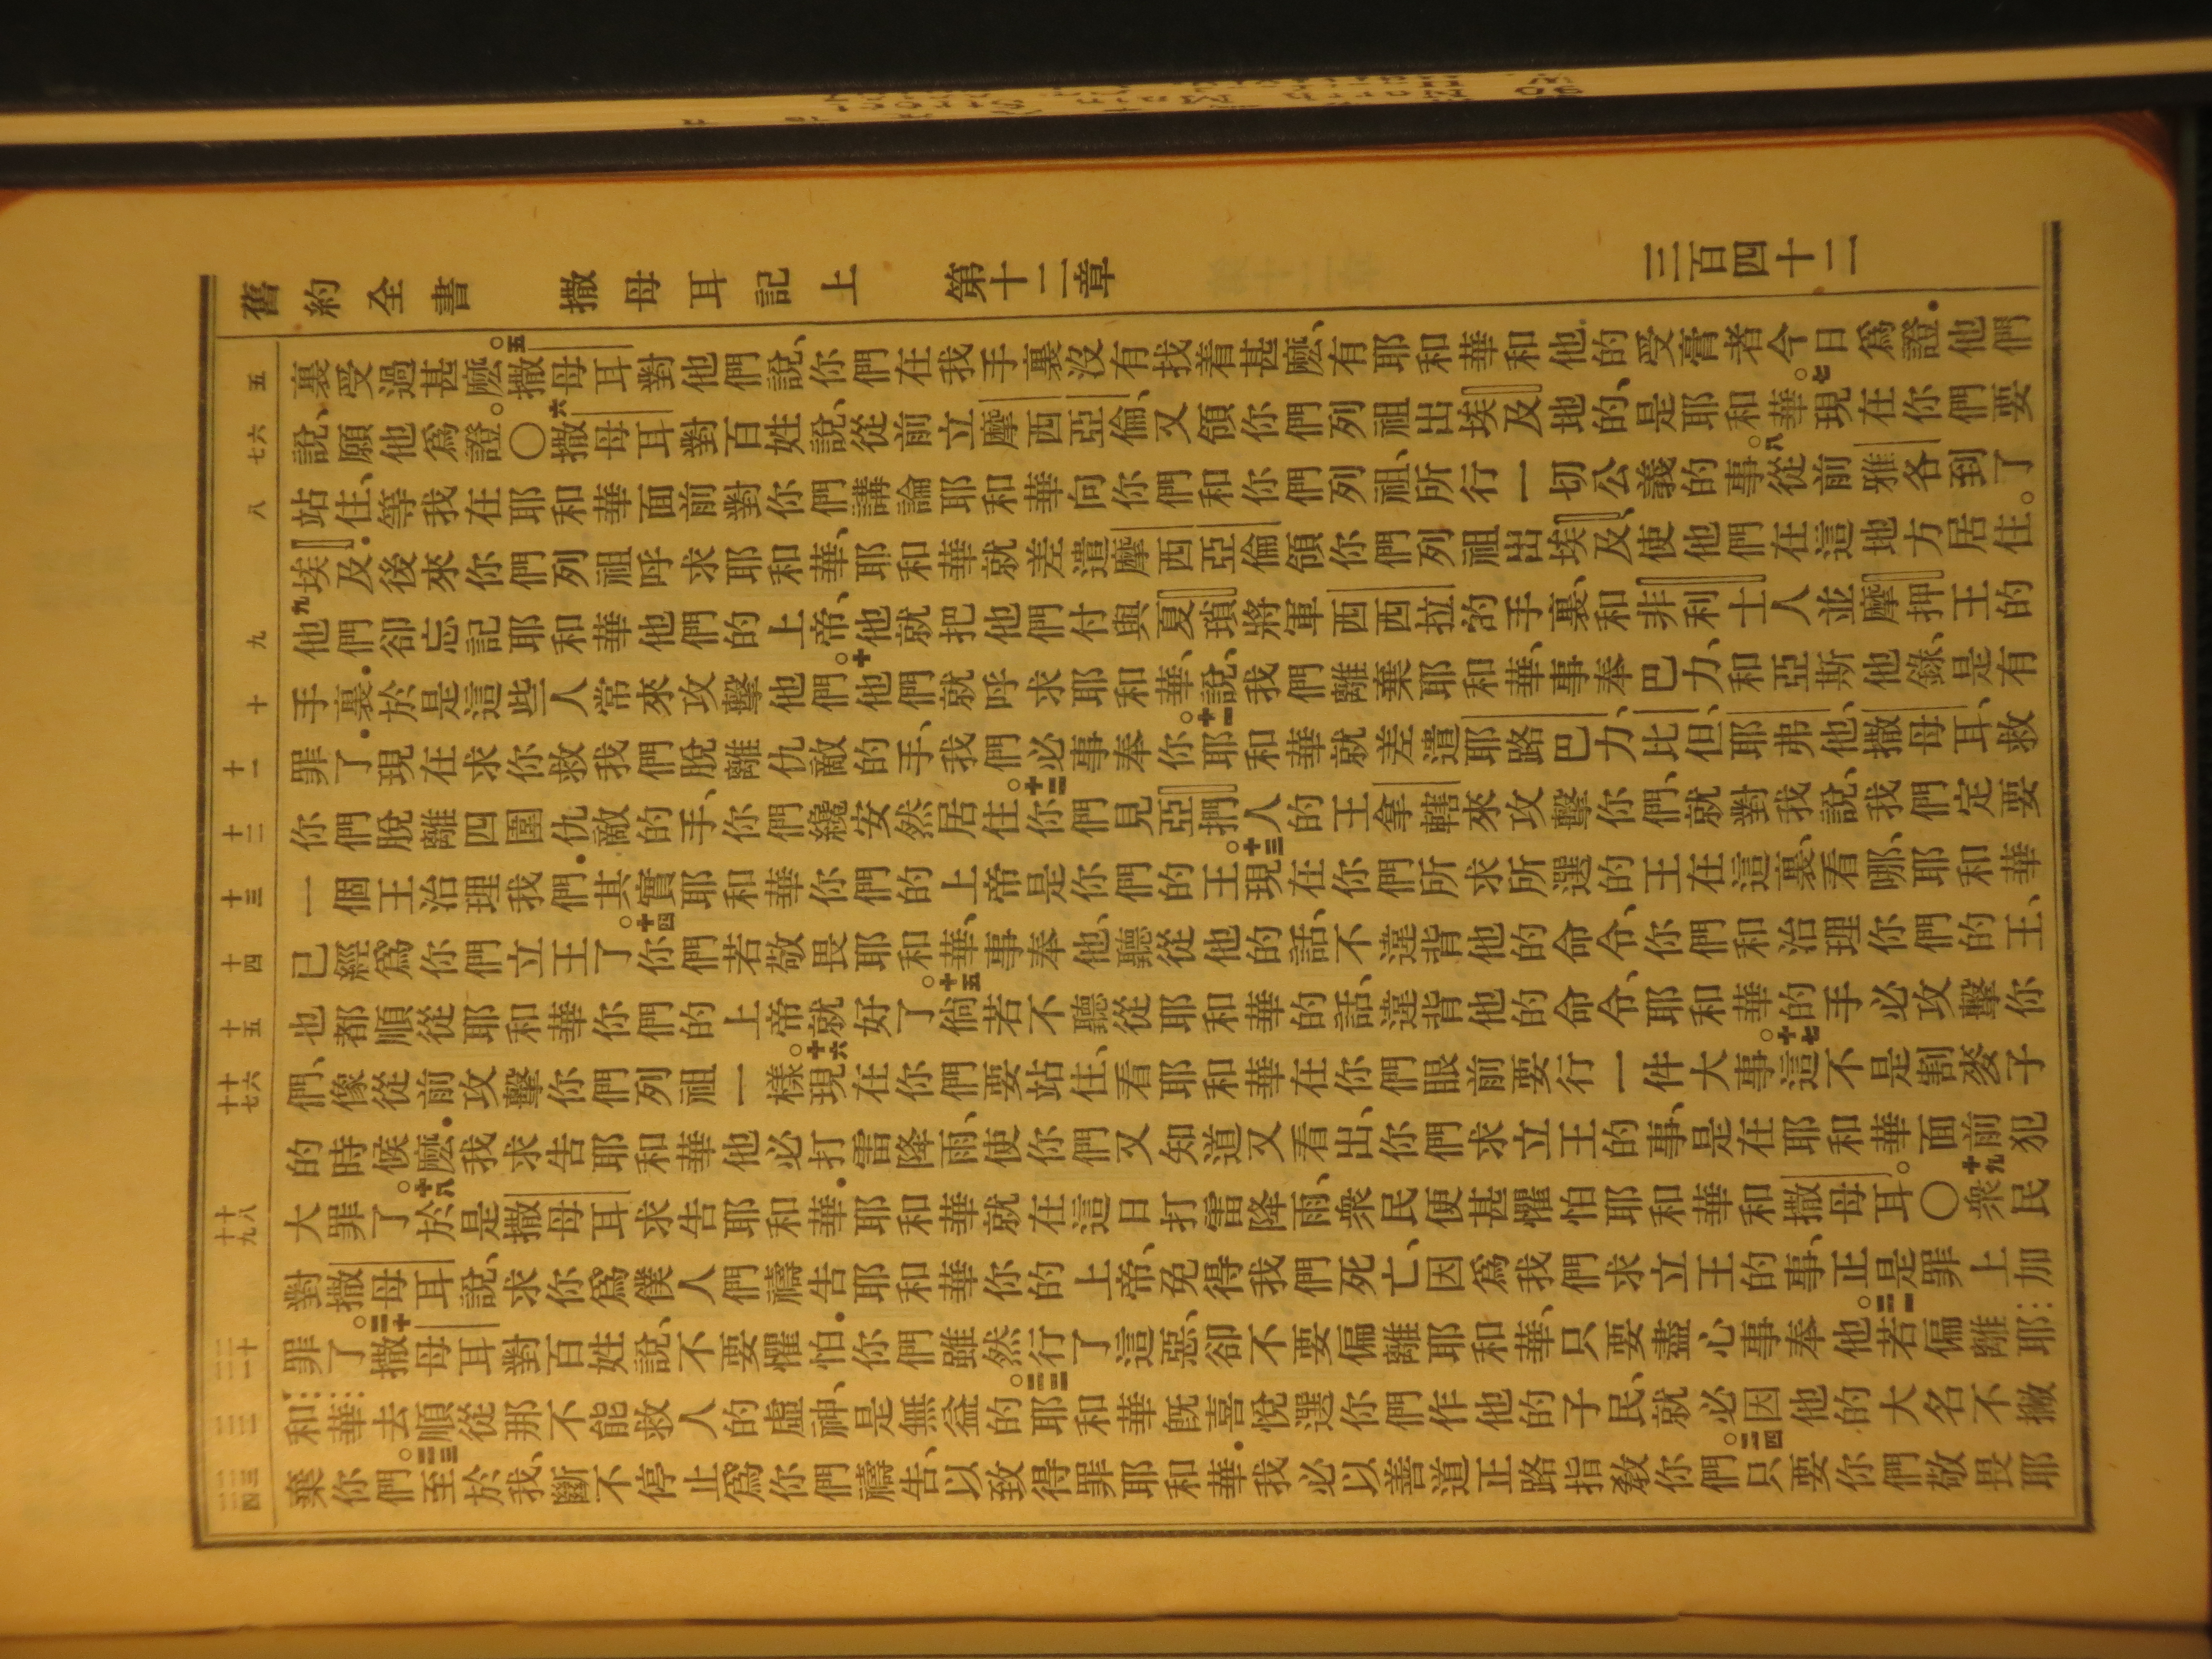 舊約全書 撒母耳記上 第十二章 三百四十二
五
六
七
八
九
十
十一
十二
十三
十四
十五
十六
十七
十八
十九
二十
二一
二二
二三
二四
裏受過甚麼。五撒母耳對他們說、你們在我手裏沒有找着甚麼、有耶和華和他的受膏者今日爲證．他們
說、願他爲證。〇六撒母耳對百姓說、從前立摩西亞倫、又領你們列祖出埃及地的、是耶和華。七現在你們要
站住、等我在耶和華面前對你們講論耶和華向你們和你們列祖、所行一切公義的事。八從前雅各到了
埃及．後來你們列祖呼求耶和華、耶和華就差遣摩西亞倫領你們列祖出埃及、使他們在這地方居住。
九他們卻忘記耶和華他們的上帝、他就把他們付與夏瑣將軍西西拉的手裏、和非利士人並摩押王的
手裏．於是這些人常來攻擊他們。十他們就呼求耶和華、說、我們離棄耶和華、事奉巴力、和亞斯他錄、是有
罪了．現在求你救我們脫離仇敵的手、我們必事奉你。十一耶和華就差遣耶路巴力、比但、耶弗他、撒母耳、救
你們脫離四圍仇敵的手、你們纔安然居住。十二你們見亞捫人的王拿轄來攻擊你們、就對我說、我們定要
一個王治理我們．其實耶和華你們的上帝是你們的王。十三現在你們所求所選的王在這裏、看哪、耶和華
已經爲你們立王了。十四你們若敬畏耶和華、事奉他、聽從他的話、不違背他的命令、你們和治理你們的王、
也都順從耶和華你們的上帝就好了。十五倘若不聽從耶和華的話、違背他的命令、耶和華的手必攻擊你
們、像從前攻擊你們列祖一樣。十六現在你們要站住、看耶和華在你們眼前要行一件大事。十七這不是割麥子
的時候麼．我求告耶和華他必打雷降雨、使你們又知道又看出、你們求立王的事、是在耶和華面前犯
大罪了。十八於是撒母耳求告耶和華．耶和華就在這日打雷降雨、衆民便甚懼怕耶和華和撒母耳。〇十九衆民
對撒母耳說、求你爲僕人們禱告耶和華你的上帝、免得我們死亡、因爲我們求立王的事、正是罪上加
罪了。二十撒母耳對百姓說、不要懼怕．你們雖然行了這惡、卻不要偏離耶和華、只要盡心事奉他。二一若偏離耶
和華去順從那不能救人的虛神、是無益的。二二耶和華旣喜悅選你們作他的子民、就必因他的大名不撇
棄你們。二三至於我、斷不停止爲你們禱告、以致得罪耶和華．我必以善道正路指敎你們。二四只要你們敬畏耶